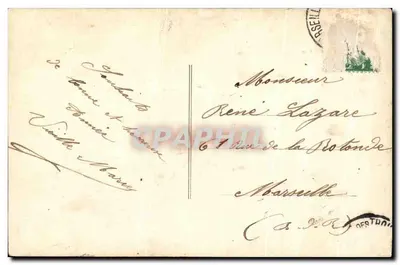 Souhaits
de bonne et heureuse
Année
Vieille Marie
Monsieur
René Lazare
61 rue de la Rotonde
Marseille
CARTOPHILIE